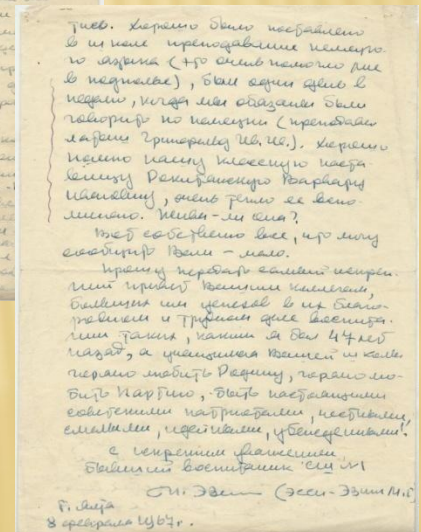 тиев. Хорошо было поставлено
в школе преподавание немецко-
го языка (что очень помогло мне
в подполье), был один день в
неделю, когда мы обязаны были
говорить по немецки (преподава-
Григорьеву Ив. Ив.). Хорошо
помню нашу классную настав-
ницу Рокитянскую Варвару
Ивановну, очень тепло ее вспо-
минаю. Жива-ли она?
Вот собственно все, что могу
сообщить Вам – мало.
Прошу передать самый искрен-
ний привет Вашим коллегам,
больших им успехов в их благо-
родном и трудном деле воспита-
ния таких, каким я был 47 лет
назад, а учащимся Вашей школы
горячо любить Родину, горячо лю-
бить Партию, быть настоящими
советскими патриотами, честными,
смелыми, идейными, убежденными!
С искренним уважением
бывший воспитанник СШ №1
(Эсси-Эзинг
г. Ялта
8 февраля 1967 г.